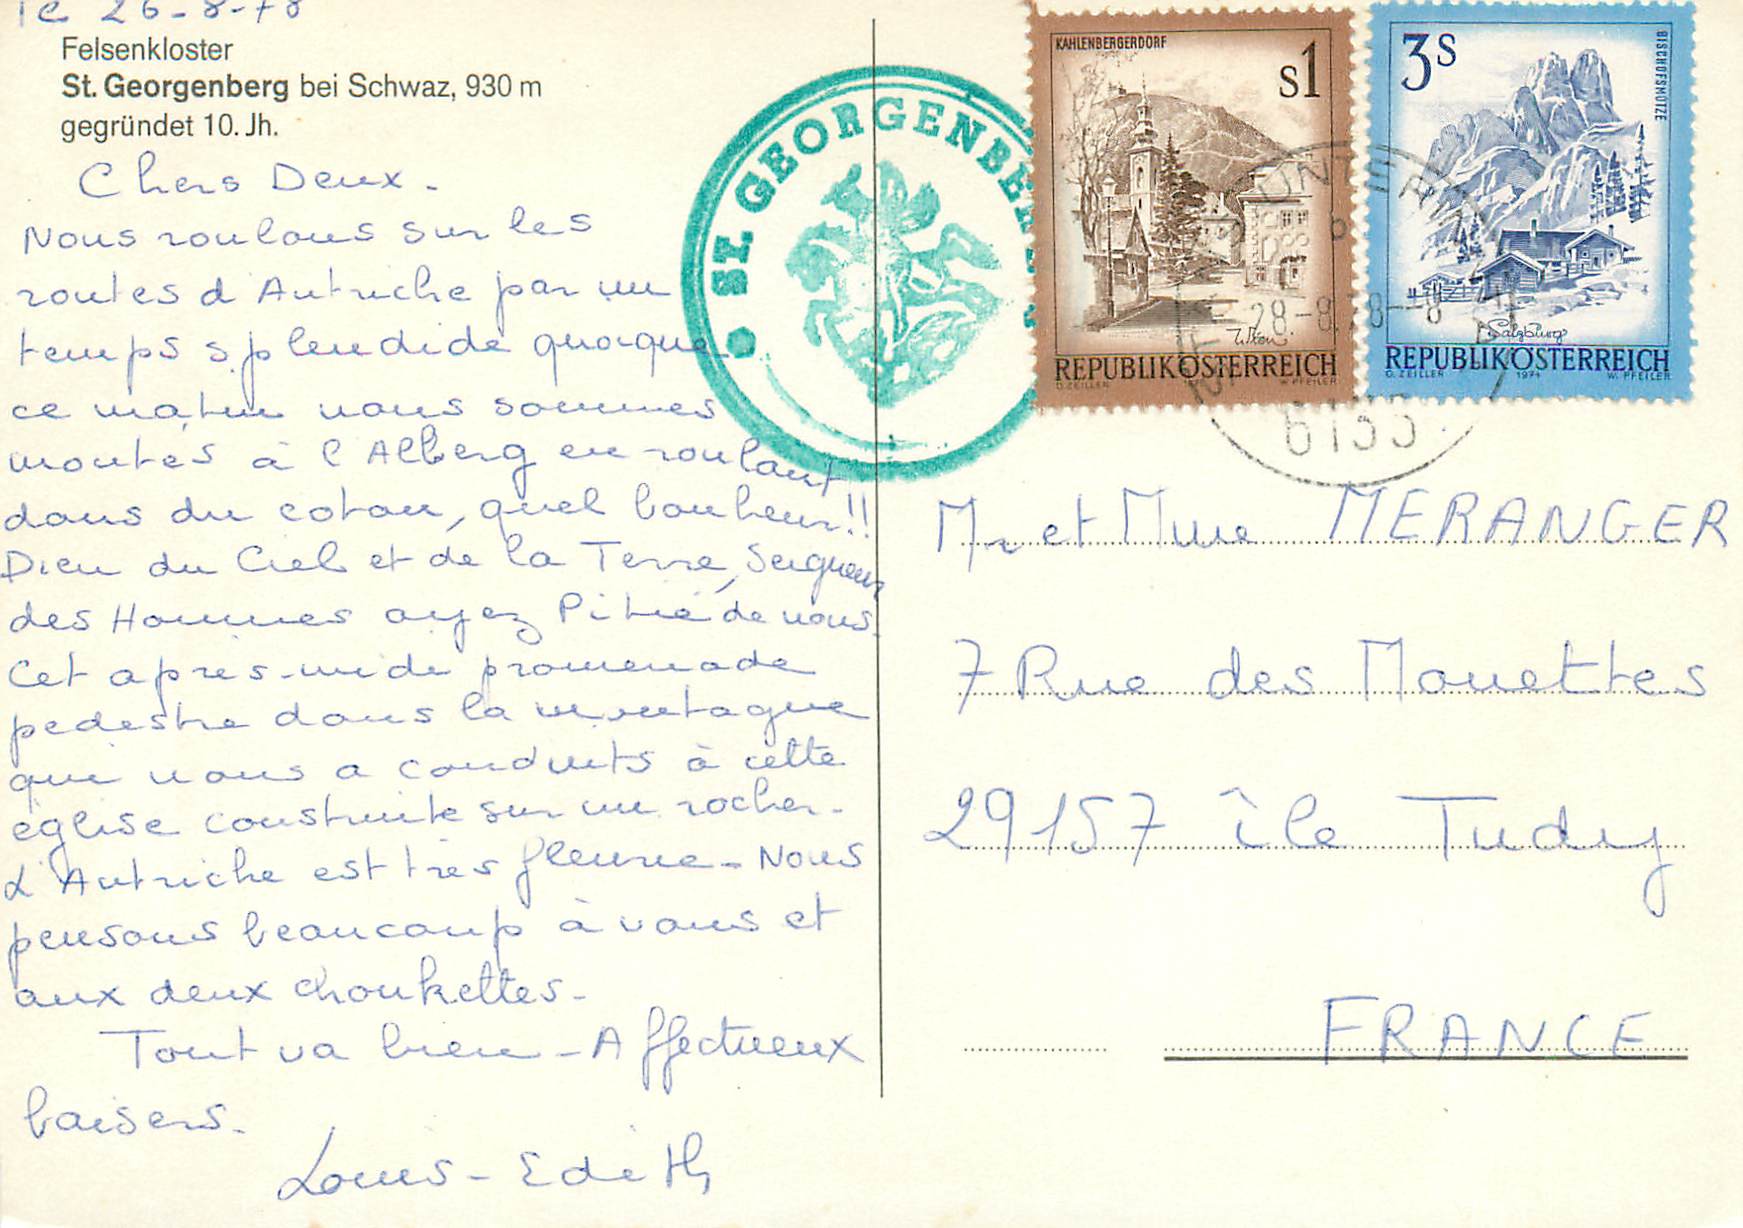 le 26-8-78
Felsenkloster
St. Georgenberg bei Schwaz, 930 m
gegründet 10. Jh.
Chers Deux.
Nous roulons sur les
routes d'Autriche par un
temps splendide quoique
ce matin nous sommes
montés à l'Alberg en roulant
dans du coton, quel bonheur!!
Dieu du Ciel et de la Terre, Seigneur
des Hommes ayez Pitié de nous.
Cet après-midi promenade
pedestre dans la montagne
qui nous a conduits à cette
église construite sur un rocher.
L'Autriche est très fleurie - Nous
pensons beaucoup à vous et
aux deux choukettes.
Tout va bien - Affectueux
baisers.
Louis-Edith
ST. GEORGENBE
KAHLENBERGERDORF
S1
Wien
REPUBLIK ÖSTERREICH
O. ZEILLER W. PFEILER
3S
BISCHOFSMÜTZE
Salzburg
REPUBLIK ÖSTERREICH
O. ZEILLER 1974 W. PFEILER
28-8.78-8
6133
Mr et Mme MERANGER
7 Rue des Mouettes
29157 île Tudy
FRANCE